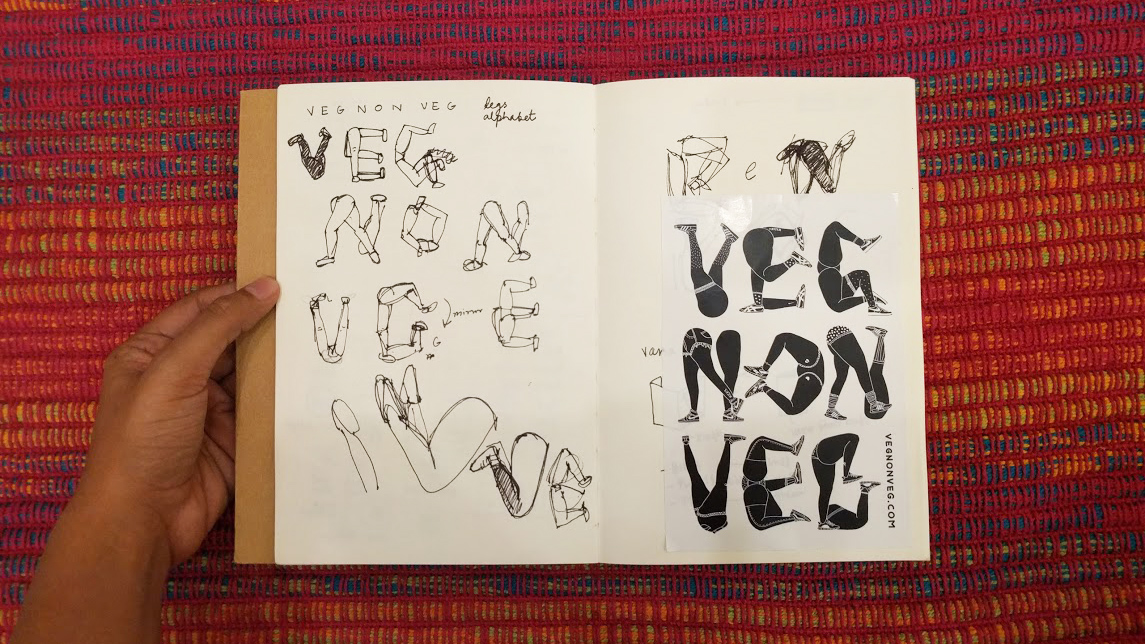 VEG NON VEG
legs
alphabet
VEG
NON
VEG E
G
R e N
VEG
NON
VEG
VEGNONVEG.COM